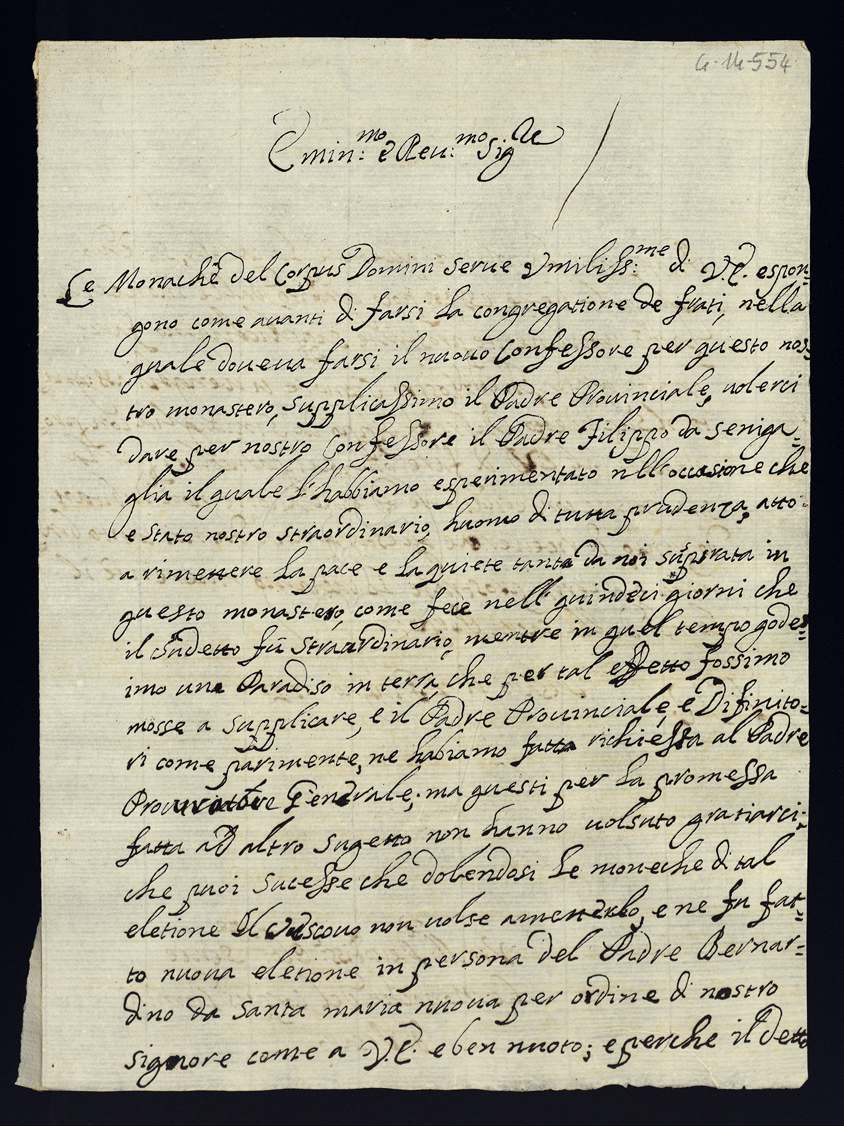 G-14-554
Emin:mo e Reu:mo Sigre
Le Monache del Corpus Domini serue Vmiliss:me di V.E. espon=
gono come auanti di farsi la congregatione de frati, nella
quale doueua farsi il nuouo Confessore per questo nos
tro monastero, supplicassimo il Padre Prouinciale, uolerci
dare per nostro Confessore il Padre Filippo da Seniga=
glia il quale l'habbiamo esperimentato nll'occasione che
e stato nostro straordinario, huomo di tutta prudenza, atto
a rimettere la pace e la quiete tanta da noi supirata in
questo monastero, come fece nell' quindeci giorni che
il sudetto fù straordinario, mentre in quel tempo gode=
imo una Paradiso in terra, che per tal effetto fossimo
mosse a supplicare, e il Padre Prouinciale, e Difinito=
ri come parimente, ne habiamo fatta richiesta al Padre
Procuratore Generale; ma questi per la promessa
fatta ad altro sugetto non hanno uolsuto gratiarci;
che puoi sucesse che dolendosi le moneche di tal
eletione il Vescouo non uolse amenterlo, e ne fu fat=
to nuoua eletione in persona del Padre Bernar=
dino da Santa maria nuoua per ordine di nostro
signore come a V.E. e ben nuoto; e perche il detto